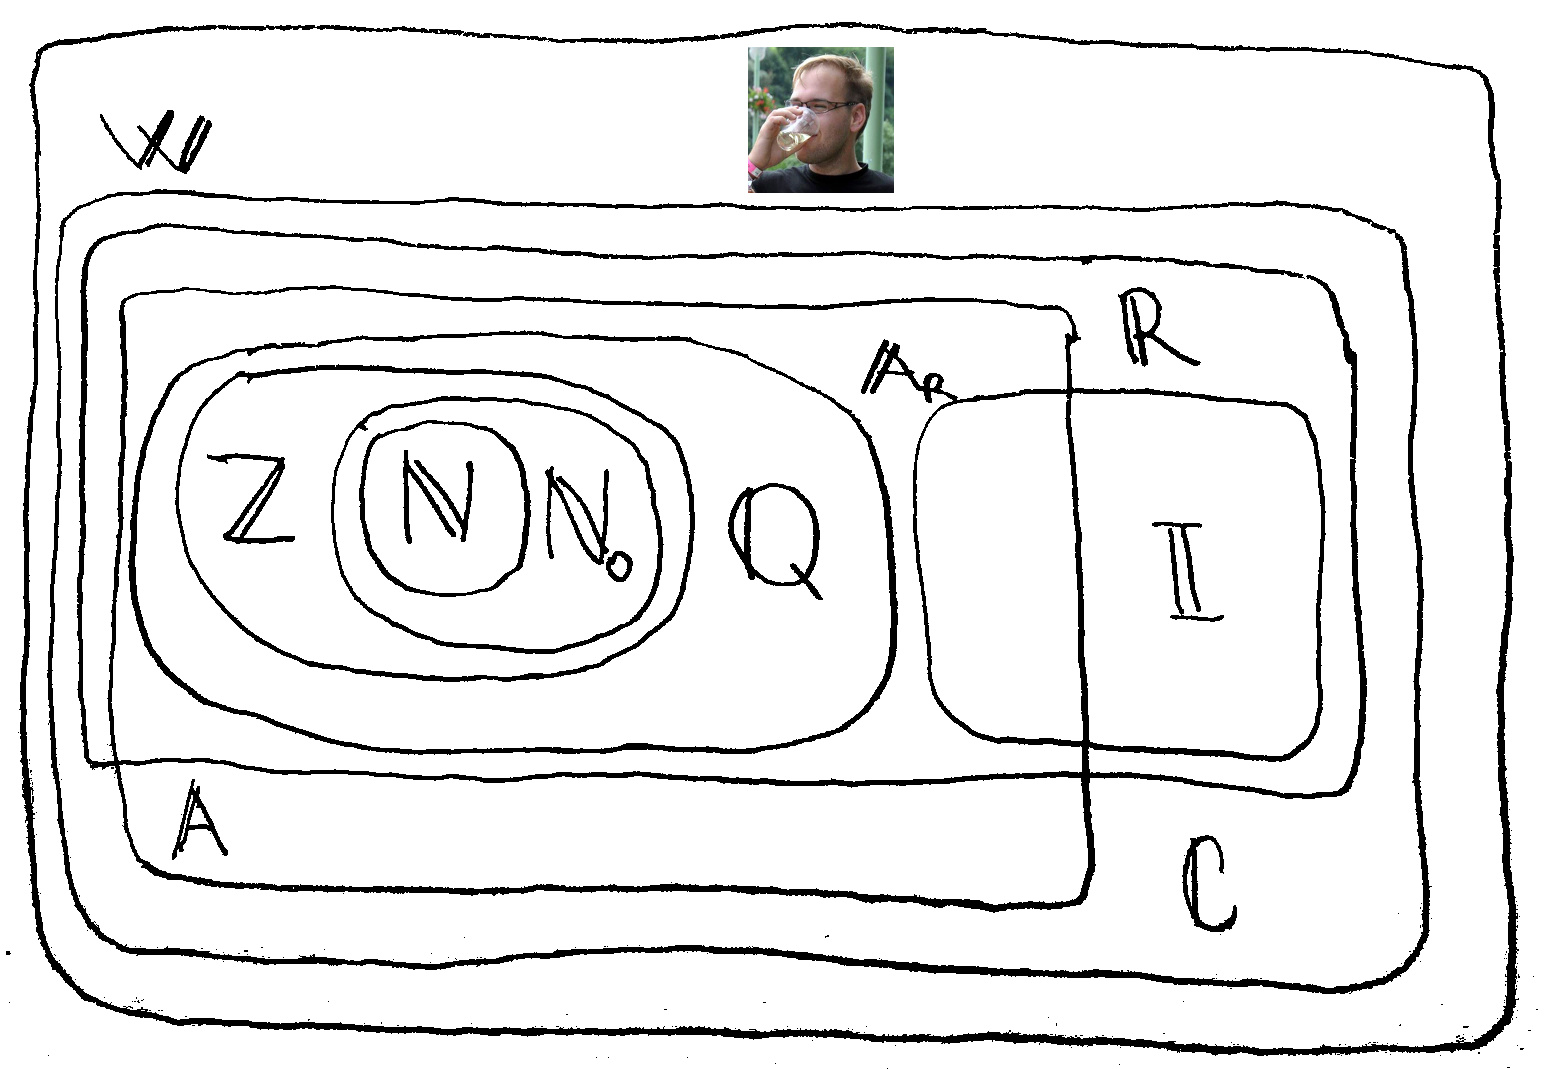 𝕎
ℝ
𝔸ℝ
ℤ
ℕ
ℕ₀
ℚ
𝕀
𝔸
ℂ